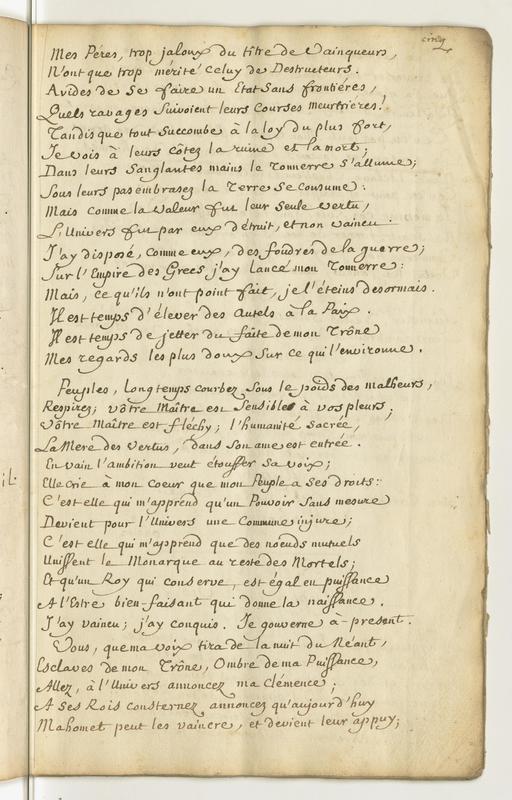 cinq
Mes Péres, trop jaloux du titre de Vainqueurs,
N'ont que trop mérité celuy de Destructeurs.
Avides de se faire un Etat sans frontiéres,
Quels ravages suivoient leurs courses meurtrieres!
Tandis que tout succombe à la loy du plus fort,
Je vois à leurs côtez la ruine et la mort;
Dans leurs Sanglantes mains le Tonnerre s'allume;
Sous leurs pas embrasez la Terre se consume:
Mais comme la Valeur fut leur seule vertu,
L'Univers fut par eux détruit, et non vaincu.
J'ay disposé, comme eux, des foudres de la guerre;
Sur l'Empire des Grecs j'ay lancé mon Tonnerre:
Mais, ce qu'ils n'ont point fait, je l'éteins desormais.
Il est temps d'élever des Autels à la Paix.
Il est temps de jetter du faîte de mon Trône
Mes regards les plus doux sur ce qui l'environne.
Peuples, longtemps courbez sous le poids des malheurs,
Respirez; vôtre Maître est Sensible à vos pleurs;
Vôtre Maître est fléchy; l'humanité sacrée,
La Mere des Vertus, dans son ame est entrée.
En vain l'ambition veut étouffer sa voix;
Elle crie à mon coeur que mon Peuple a ses droits:
C'est elle qui m'apprend qu'un Pouvoir sans mesure
Devient pour l'Univers une Commune injure;
C'est elle qui m'apprend que des noeuds mutuels
Unissent le Monarque au reste des Mortels;
Et qu'un Roy qui conserve, est égal en puissance
A l'Estre bien-faisant qui donne la naissance.
J'ay vaincu; j'ay conquis. Je gouverne à-present.
Vous, que ma voix tira de la nuit du Néant,
Esclaves de mon Trône, Ombre de ma Puissance,
Allez, à l'Univers annoncez ma Clémence;
A ses Rois consternez annoncez qu'aujourd'huy
Mahomet peut les vaincre, et devient leur appuy;